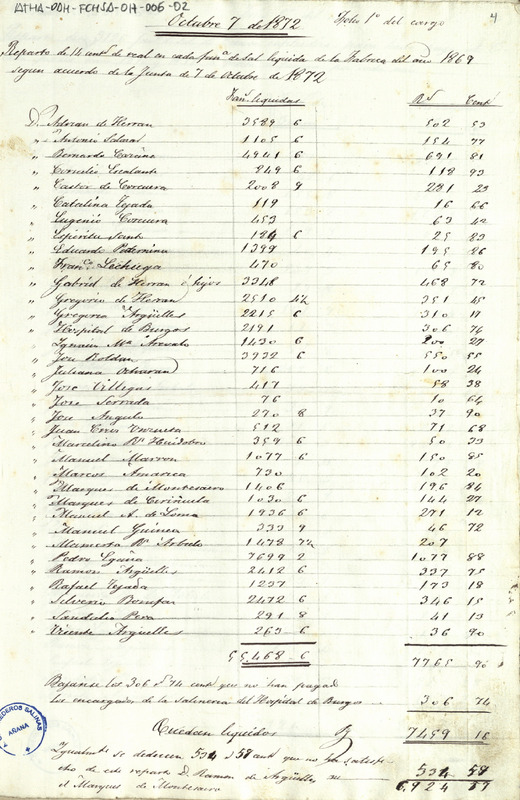 ATHA-DAH-FCHSA-OH-006-02
Octubre 7 de 1872
Folio 1º del cuerpo
4
Reparto de 14 cents de real en cada fanª de sal liquida de la Fabrica del año 1869
segun acuerdo de la Junta de 7 de Octubre de 1872
Fans liquidas Rs Cents
D. Adrian de Herran 3589 6 502 53
" Antonio Salazar 1105 6 154 77
" Bernardo 4941 6 691 81
" Cornelio Escalante 849 6 118 93
" Castor de Corcuera 2008 9 281 23
" Catalina Tejada 119 16 66
" Eugenio Corcuera 453 63 42
" Espiritu Santo 184 6 25 83
" Eduardo Paternina 1399 195 86
" Francº Lechuga 470 65 80
" Gabriel de Herran é hijos 3348 468 72
" Gregorio de Herran 2510 4½ 351 45
" Gregoria Argüelles 2215 6 310 17
" Hospital de Burgos 2191 306 74
" Ignacio Mª Arevalo 1430 6 200 27
" Jose Roldan 3932 6 550 55
" Juliana Ochavan 716 100 24
" Jose Villegas 417 58 38
" Jose Serrada 76 10 64
" Jose Angulo 270 8 37 90
" Juan Cruz 512 71 68
" Marcelino Rz Huidobro 359 6 50 33
" Manuel Marron 1077 6 150 85
" Marcos Amarica 730 102 20
" Marques de Montesacro 1406 196 84
" Marques de Ciriñuela 1030 6 144 27
" Manuel A. de Loma 1936 6 271 12
" Manuel Guinea 333 9 46 72
" Mamerta Rz Arbulo 1478 7½ 207
" Pedro Egaña 7699 2 1077 88
" Ramon Argüelles 2412 6 337 75
" Rafael Tejada 1237 173 18
" Silverio Bonifaz 2472 6 346 15
" Sandalio 291 8 41 13
" Vicente Argüelles 263 6 36 90
55.468 6 7765 90
Bajanse los 306 rs 74 cents que no han pagado
los encargados de la salinería del Hospital de Burgos 306 74
Quedan liquidos 7459 16
Igualmente se deducen 534 rs 59 cent que no han satisfe
cho de este reparto D. Ramon de Argüelles 534 59
el Marques de Montesacro 6.924 57
HEREDEROS SALINAS
ANANA